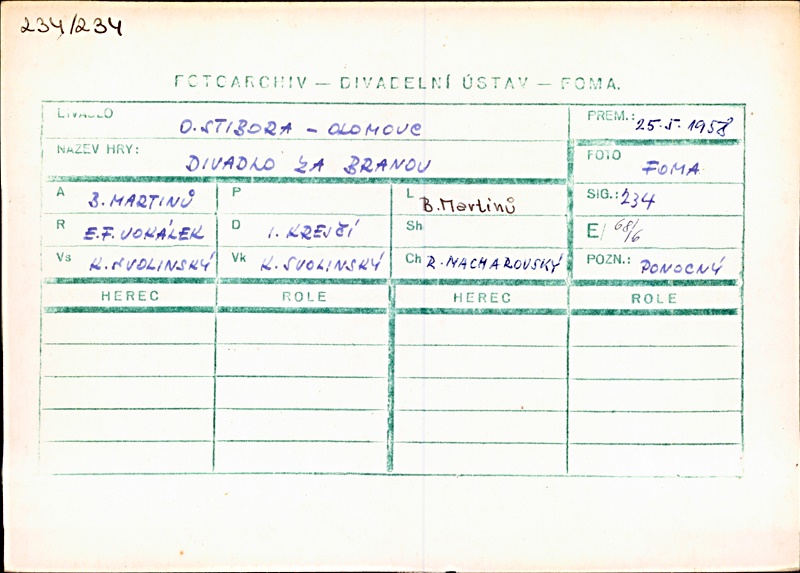 234/234
FOTOARCHIV — DIVADELNÍ ÚSTAV — FOMA.
DIVADLO O. STIBORA - OLOMOUC
PREM.: 25.5.1958
NÁZEV HRY: DIVADLO ZA BRANOU
FOTO FOMA
A B. MARTINŮ P L B. Martinů SIG.: 234
R E.F. VOKÁLEK D I. KREJČÍ Sh E/ 68/6
Vs K. SVOLINSKÝ Vk K. SVOLINSKÝ Ch R. MACHAROVSKÝ POZN.: PONOCNÝ
HEREC ROLE HEREC ROLE